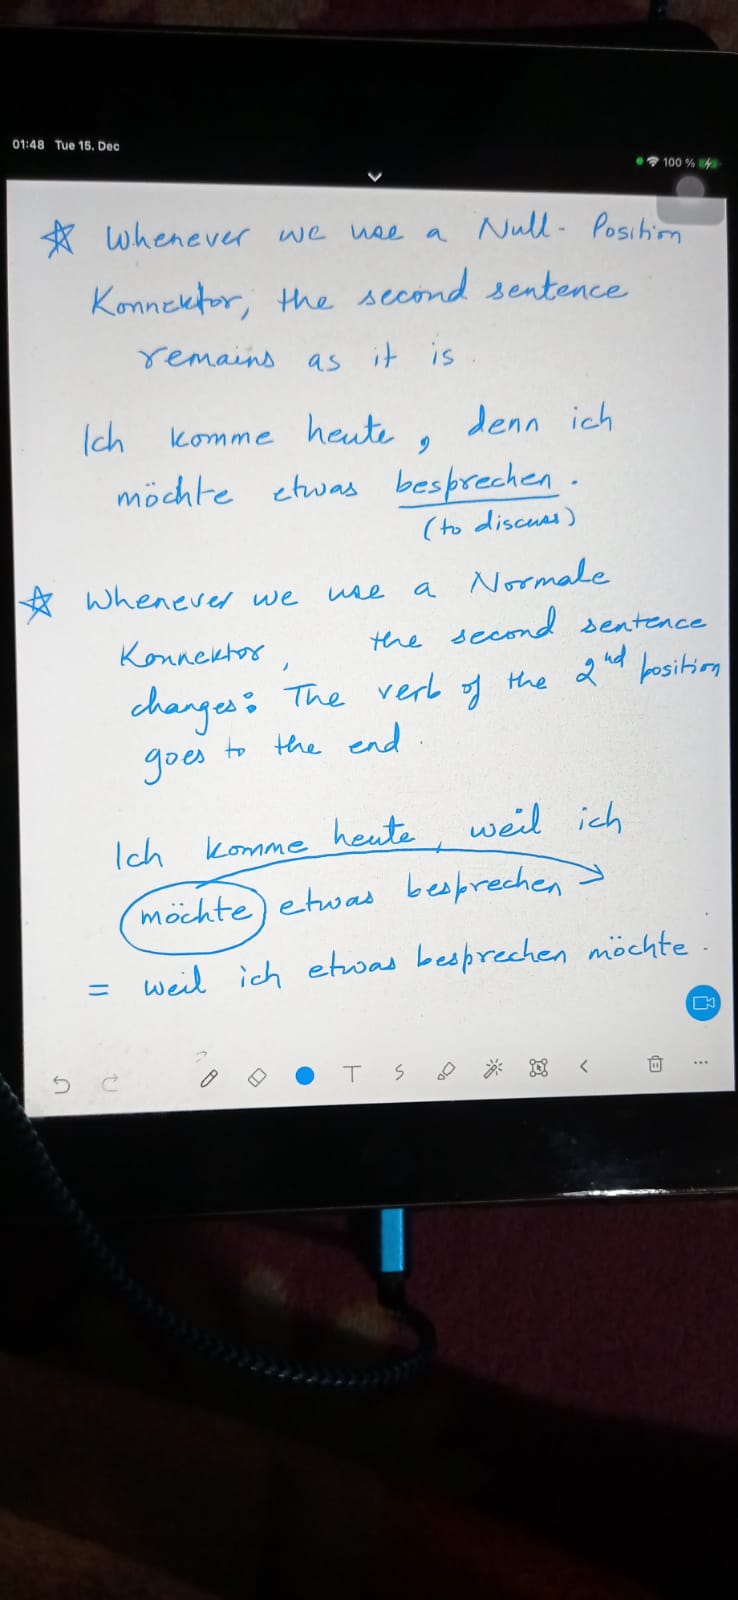 01:48 Tue 15. Dec
100 %
☆ Whenever we use a Null-Position
Konnektor, the second sentence
remains as it is.
Ich komme heute, denn ich
möchte etwas besprechen.
(to discuss)
☆ Whenever we use a Normale
Konnektor, the second sentence
changes: The verb of the 2nd position
goes to the end.
Ich komme heute, weil ich
möchte etwas besprechen
= weil ich etwas besprechen möchte.
T